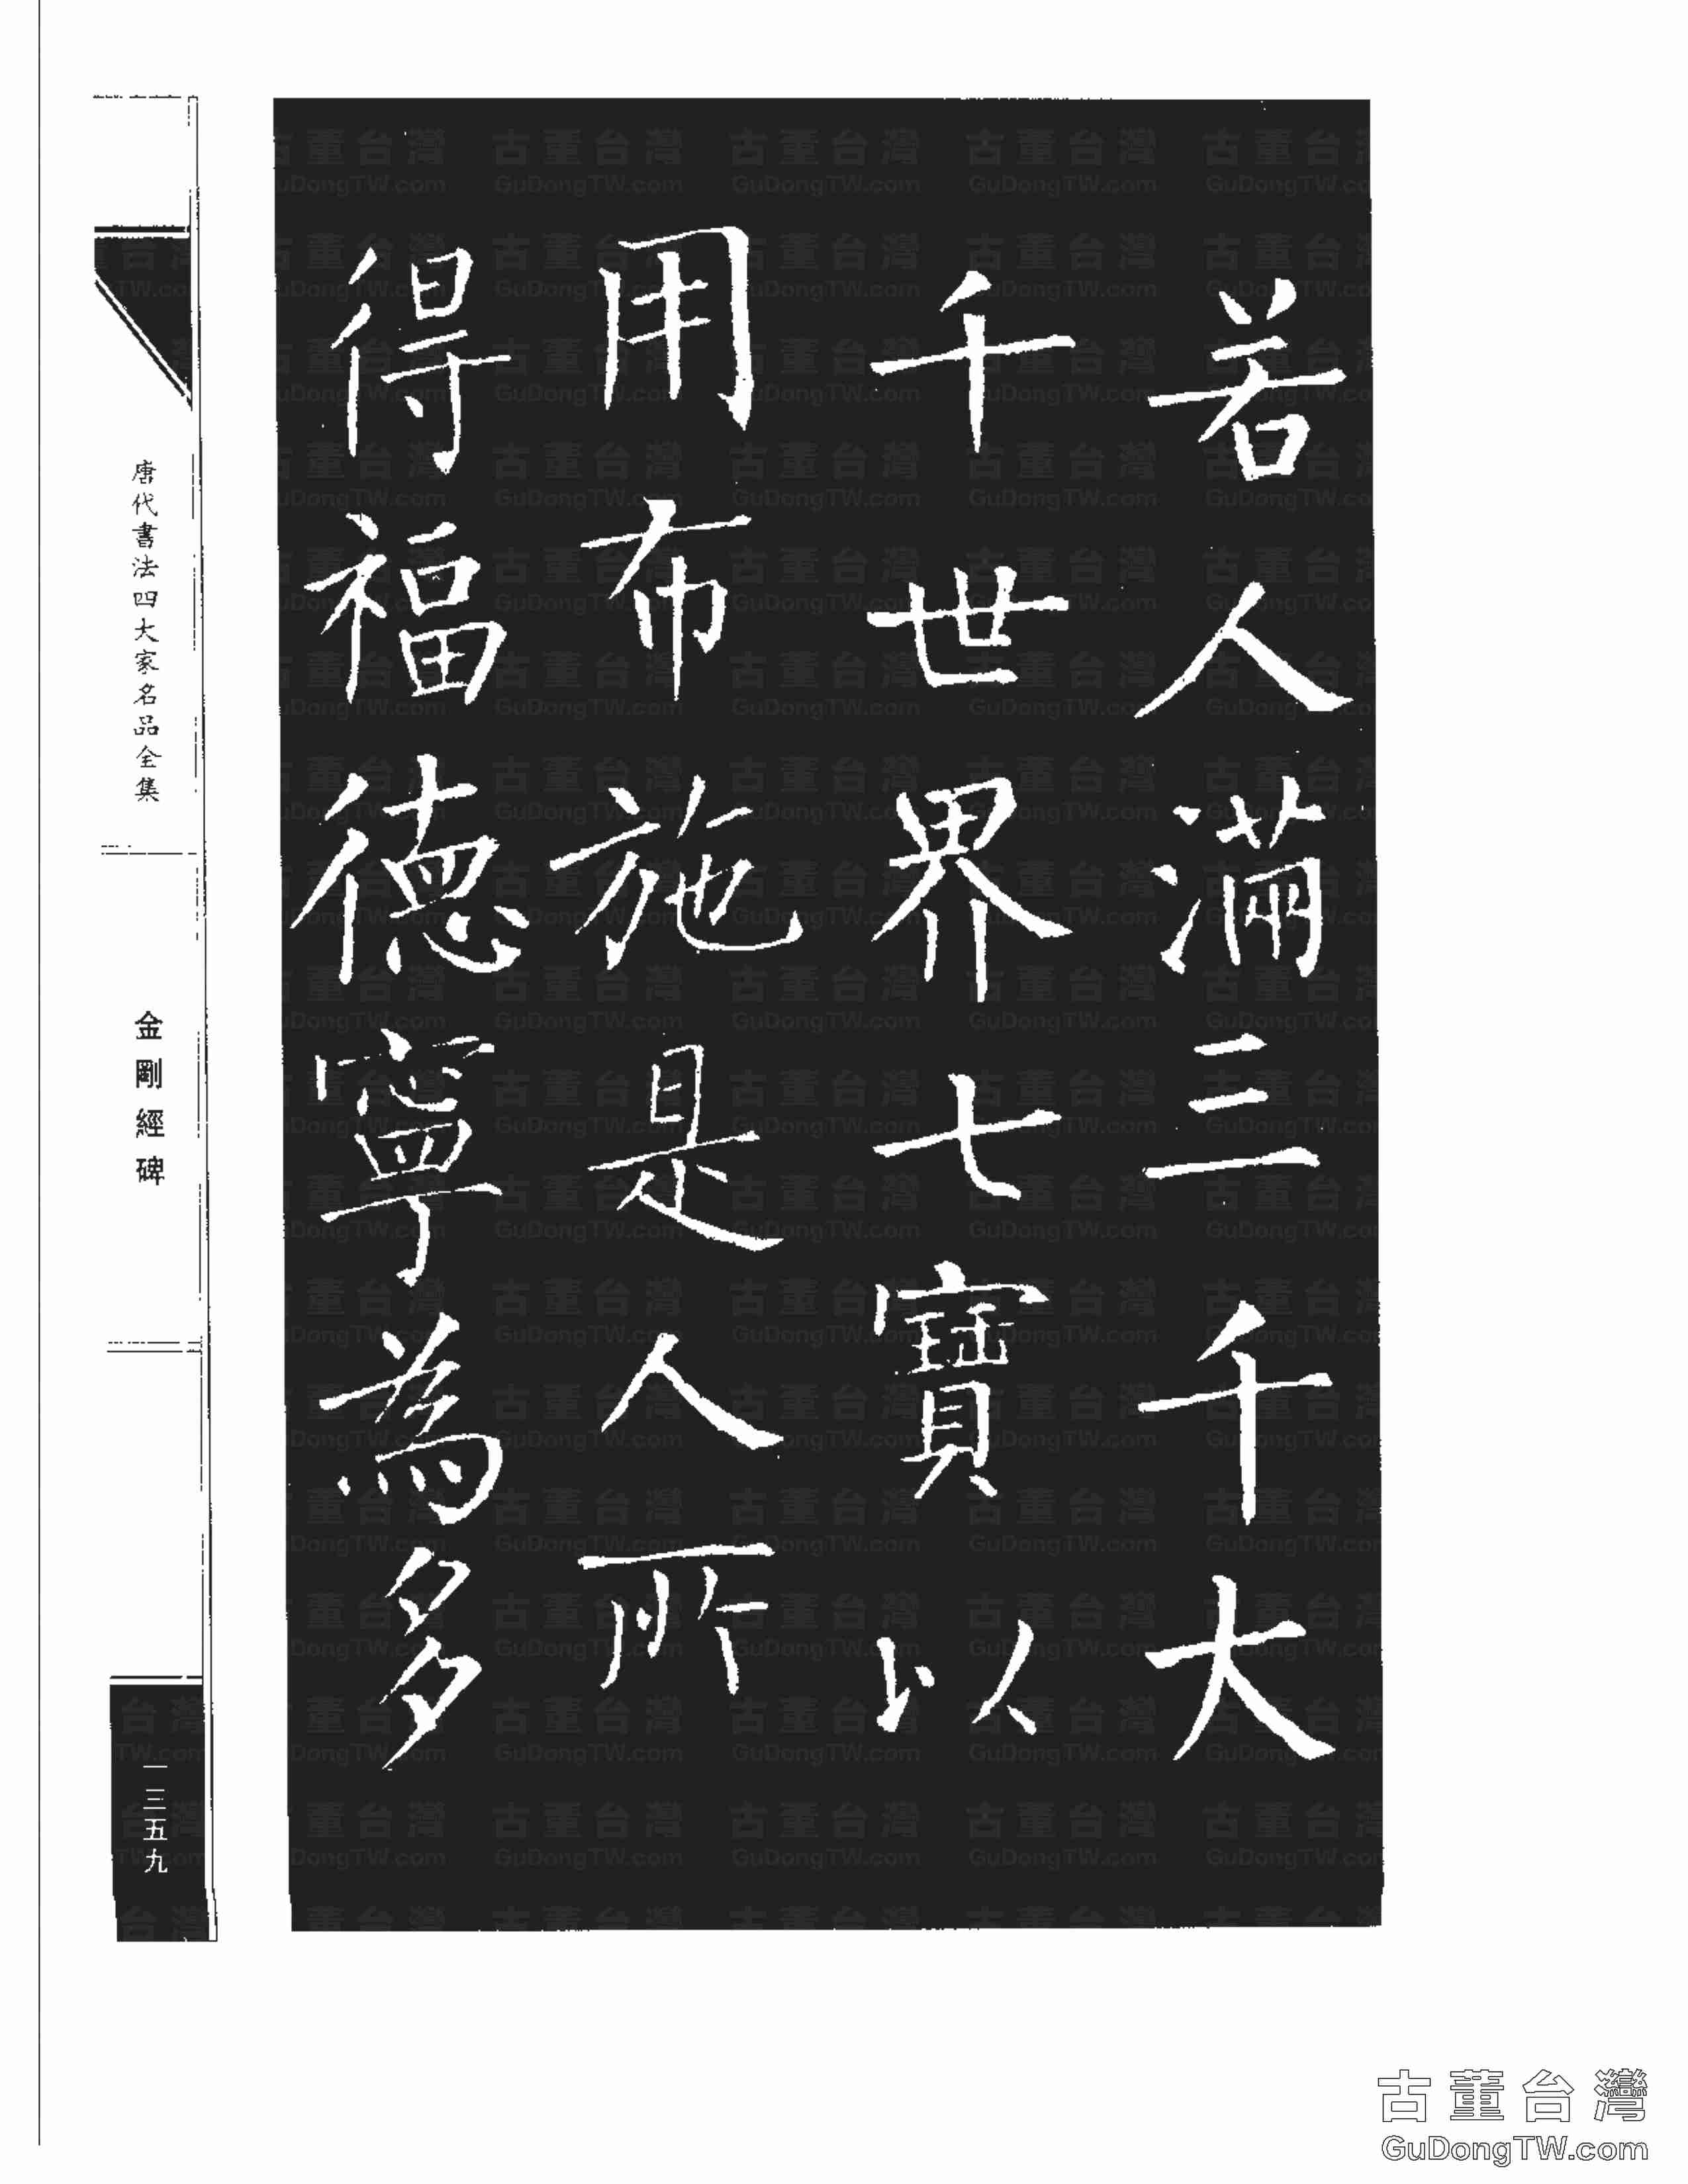 若人滿三千大
千世界七寶以
用布施是人所
得福德寧為多
唐代書法四大家名品全集
金剛經碑
一三五九
古董台灣
GuDongTW.com